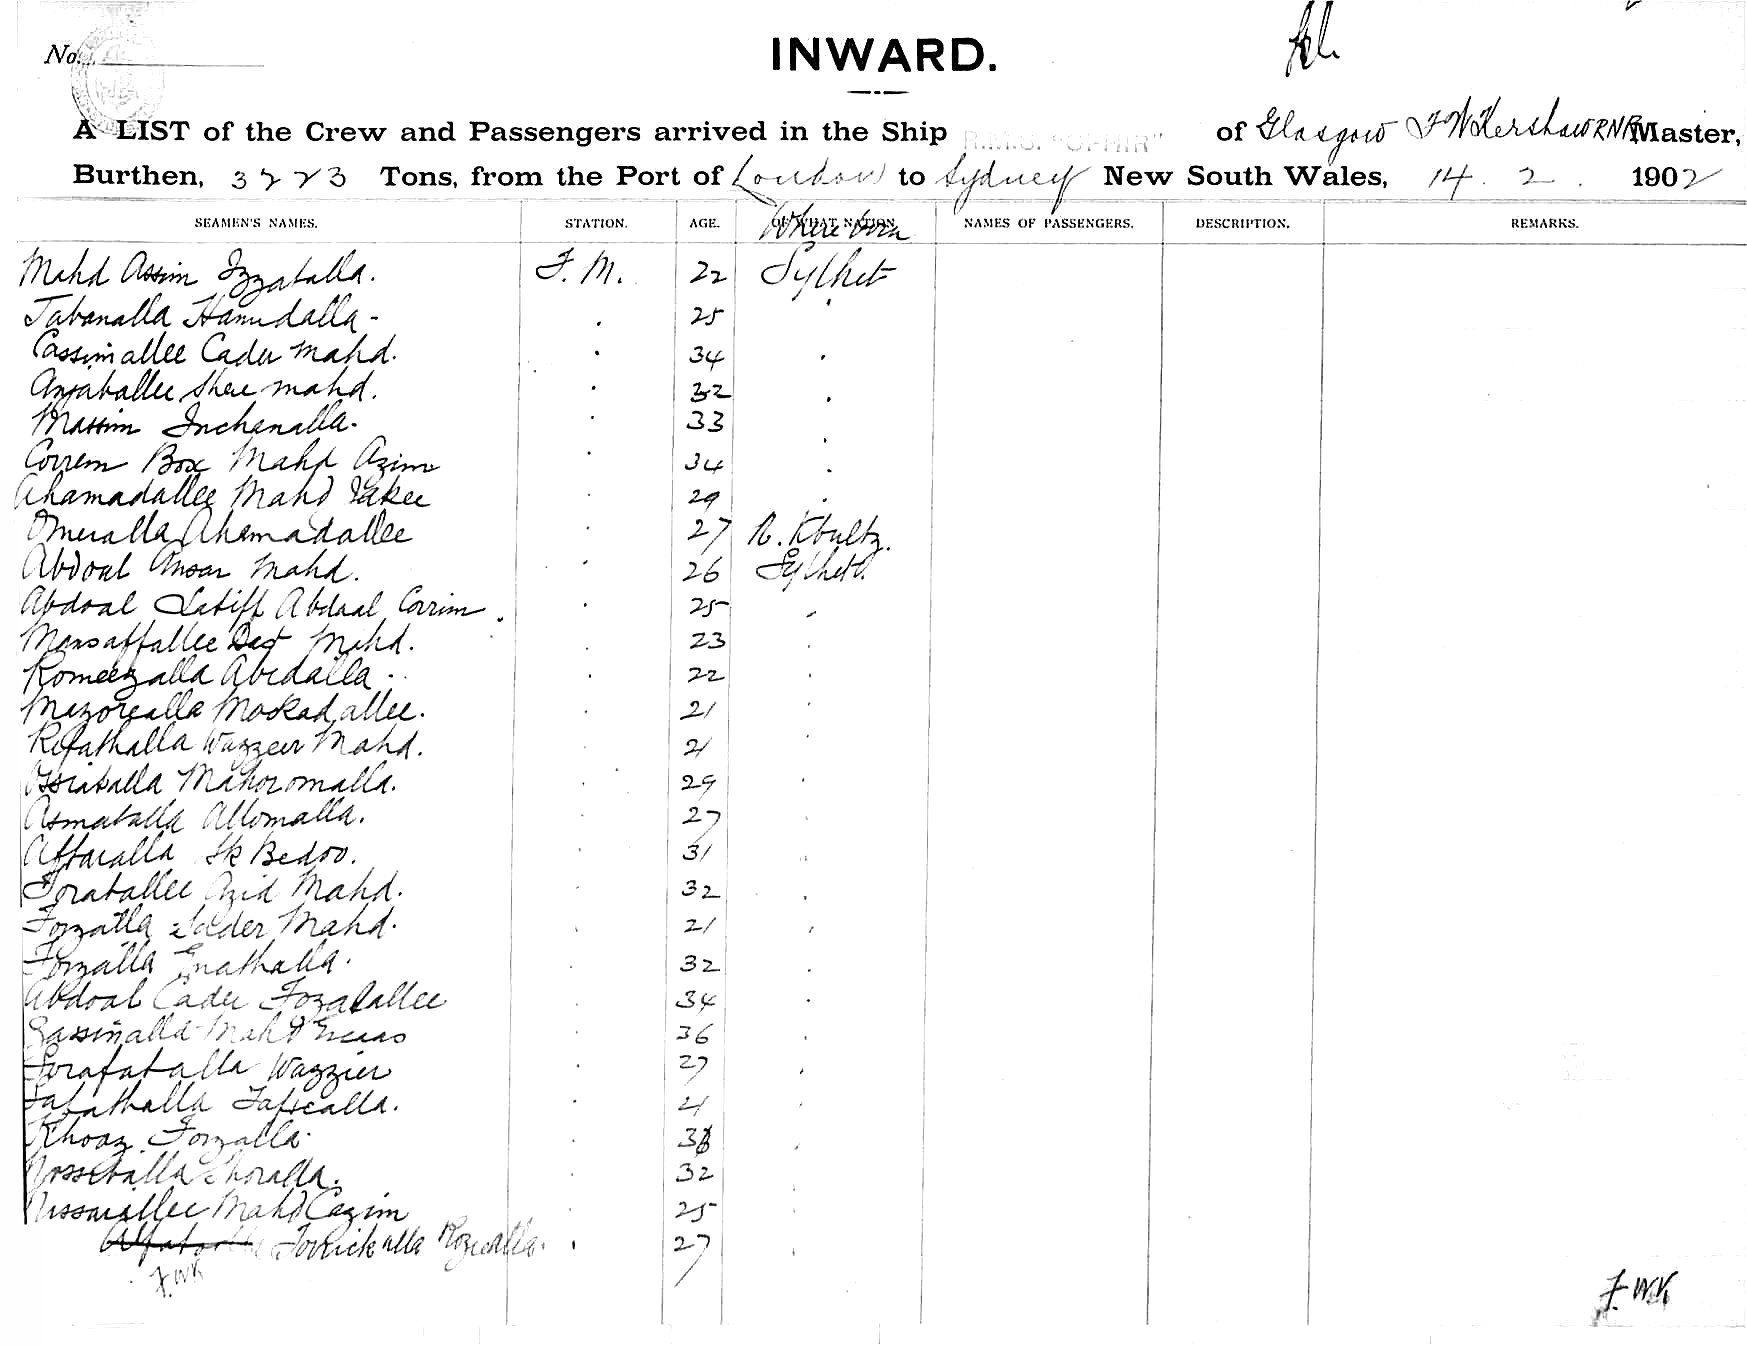 No.
INWARD.
A LIST of the Crew and Passengers arrived in the Ship R.M.S. "OPHIR" of Glasgow F W Kershaw RNR Master,
Burthen, 3223 Tons, from the Port of London to Sydney New South Wales, 14 . 2 . 1902
SEAMEN'S NAMES. STATION. AGE. OF WHAT NATION. Where born NAMES OF PASSENGERS. DESCRIPTION. REMARKS.
Mahd Assim Izzatalla. F. M. 22 Sylhet
Tabanalla Hamidalla - 25
Cassimallee Cader Mahd. 34
Anjaballee Shee mahd. 32
Massim Inchanalla. 33
Correm Box Mahd Azim 34
Ahamadallee Mahd Zakee 29
Omeralla Ahamadallee 27
Abdoal Ansar Mahd. 26 Sylhet
Abdoal Latiff Abdaal Corrim. 25
Monsaffallee Dast Mahd. 23
Romeezalla Abedalla - 22
Mezorealla Mockadallee. 21
Refathalla Wazzeer Mahd. 21
Ossiatalla Mahoromalla. 29
Asmatalla Allomalla. 27
Affaralla Sk Bedoo. 31
Toraballee Azid Mahd. 32
Forzalla Sader Mahd. 21
Forzalla Enathalla. 32
Abdoal Cader Fozatallee 34
Gassinalla Mahd 36
Sorafatalla Wazzier 27
Tafathalla Tafsealla. 21
Khoaz Forzalla 32
Nosseballa Shoralla. 25
Nissarallee Mahd Cazim 27
Torrickalla Rozealla.
F.W.K
F.W.K.